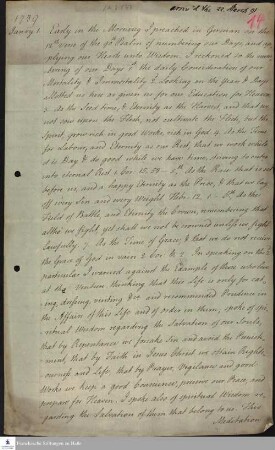 1789
January 1
14
Early in the Morning I preached in German on the
12th verse of the 90th Psalm of numbering our Days and ap-
plying our Hearts unto Wisdom. I reckoned to the num-
bering of our Days 1. the daily Consideration of our
Mortality & Immortality 2. Looking on the space & Days
allotted us here as given us for our Education for Heaven
3. As the Seed time, & Eternity as the Harvest, and that we
not sow upon the Flesh, not cultivate the Flesh, but the
Spirit, grow rich in good Works, rich in God 4. As the Time
for Labour, and Eternity as our Rest, that we work while it
is Day & do good while we have time, striving to enter
into eternal Rest 5. As the Race that is set
before us, and a happy Eternity as the Prize, & that we lay
off every Sin and every Weight Heb. 12. 1. 6. As the
Field of Battle and Eternity the Crown, remembering that
altho' we fight yet shall we not be crowned unless we fight
Lawfully 7. As the Time of Grace, & that we do not receive
the Grace of God in vain 2 Cor. 6. In speaking on the
particular I warned against the Example of those who live
at a Venture thinking that this Life is only for eat-
ing, dressing, visiting &c and recommended Prudence in
the Affairs of this Life and of order in them, spoke of spi-
ritual Wisdom regarding the Salvation of our Souls,
that by Repentance we forsake Sin and avoid the Punish-
ment, that by Faith in Jesus Christ we obtain Righte-
ousness and Life, that by Prayer, Vigilance and good
Works we keep a good Conscience, preserve our Peace, and
prepare for Heaven. I spoke also of spiritual Wisdom re-
garding the Salvation of them that belong to us. This
Meditation
Franckesche Stiftungen zu Halle